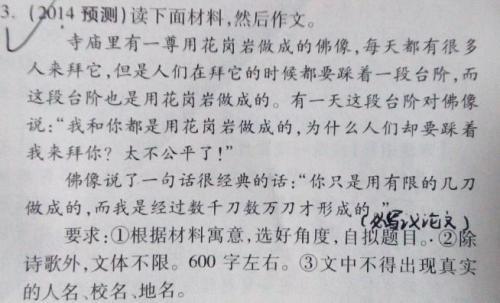 3. (2014 预测)读下面材料,然后作文。
寺庙里有一尊用花岗岩做成的佛像,每天都有很多
人来拜它,但是人们在拜它的时候都要踩着一段台阶,而
这段台阶也是用花岗岩做成的。有一天这段台阶对佛像
说:“我和你都是用花岗岩做成的,为什么人们却要踩着
我来拜你?太不公平了!”
佛像说了一句话很经典的话:“你只是用有限的几刀
做成的,而我是经过数千刀数万刀才形成的。”
(必写议论文)
要求:①根据材料寓意,选好角度,自拟题目。②除
诗歌外,文体不限。600 字左右。③文中不得出现真实
的人名、校名、地名。